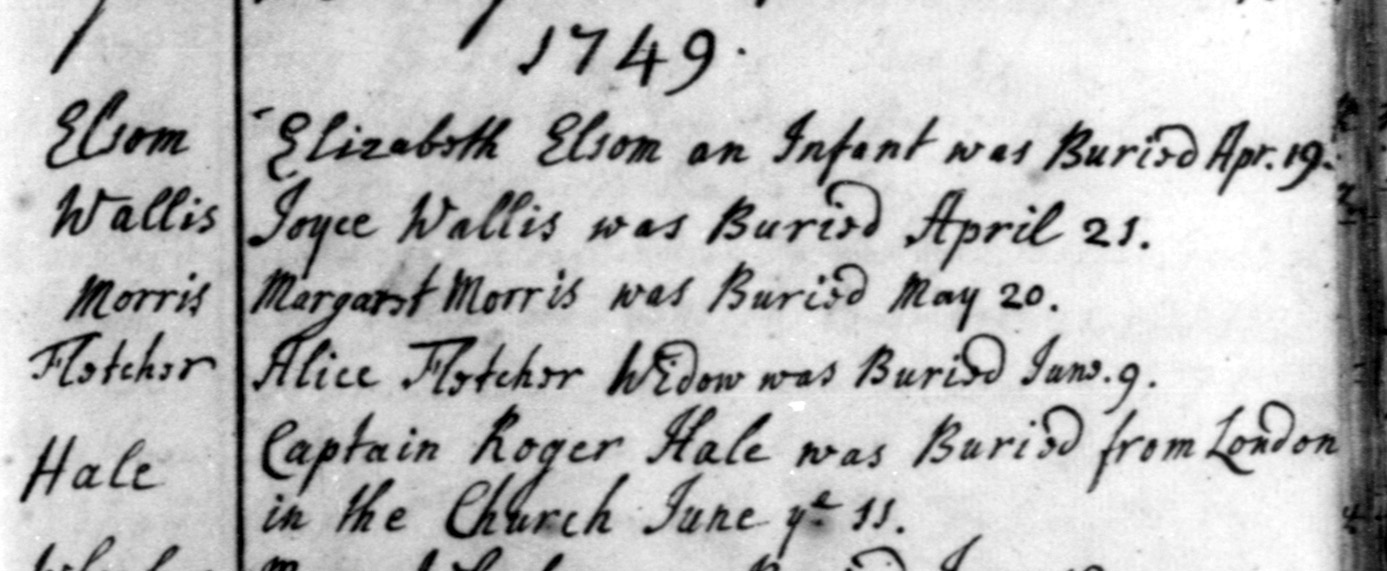 1749.
Elsom Elizabeth Elsom an Infant was Buried Apr. 19.
Wallis Joyce Wallis was Buried April 21.
Morris Margaret Morris was Buried May 20.
Fletcher Alice Fletcher Widow was Buried June. 9.
Hale Captain Roger Hale was Buried from London
in the Church June ye 11.